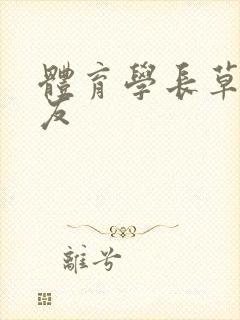 體育學長草
友
離兮